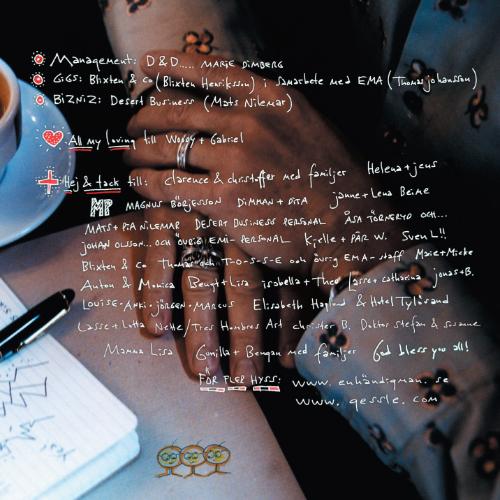 Management: D&D..... MARIE DIMBERG
GIGS: Blixten & Co (Blixten Henriksson) i samarbete med EMA (Thomas Johansson)
BiZNiZ: Desert Business (Mats Nilemar)
All my loving till Woody + Gabriel
Hej & tack till: Clarence & christoffer med familjer Helena + Jens
MP MAGNUS BÖRJESSON DIMMAN + DITA Janne + Lena Beime
MATS + PIA NILEMAR DESERT BUSINESS PERSONAL ÅSA TÖRNERYD OCH...
JOHAN OLSSON... OCH ÖVRIG EMI-PERSONAL Kjelle + PÄR W. Sven L!!
Blixten & Co Thomas och T-O-S-S-E och övrig EMA-staff Marie + Micke
Anton & Monica Bengt + Lisa isabella + Theo Lasse + Catharina jonas + B.
LOUISE-Anki-JÖRGEN-MARCUS Elisabeth Hoglund & Hotel Tylösand
Lasse + Lotta Nette/Tres Hombres Art christer B. Doktor Stefan & Susanne
Mamma Lisa Gunilla + Bengan med familjer God bless you all!
FÖR FLER HYSS: www.enhändigman.se
www.gessle.com